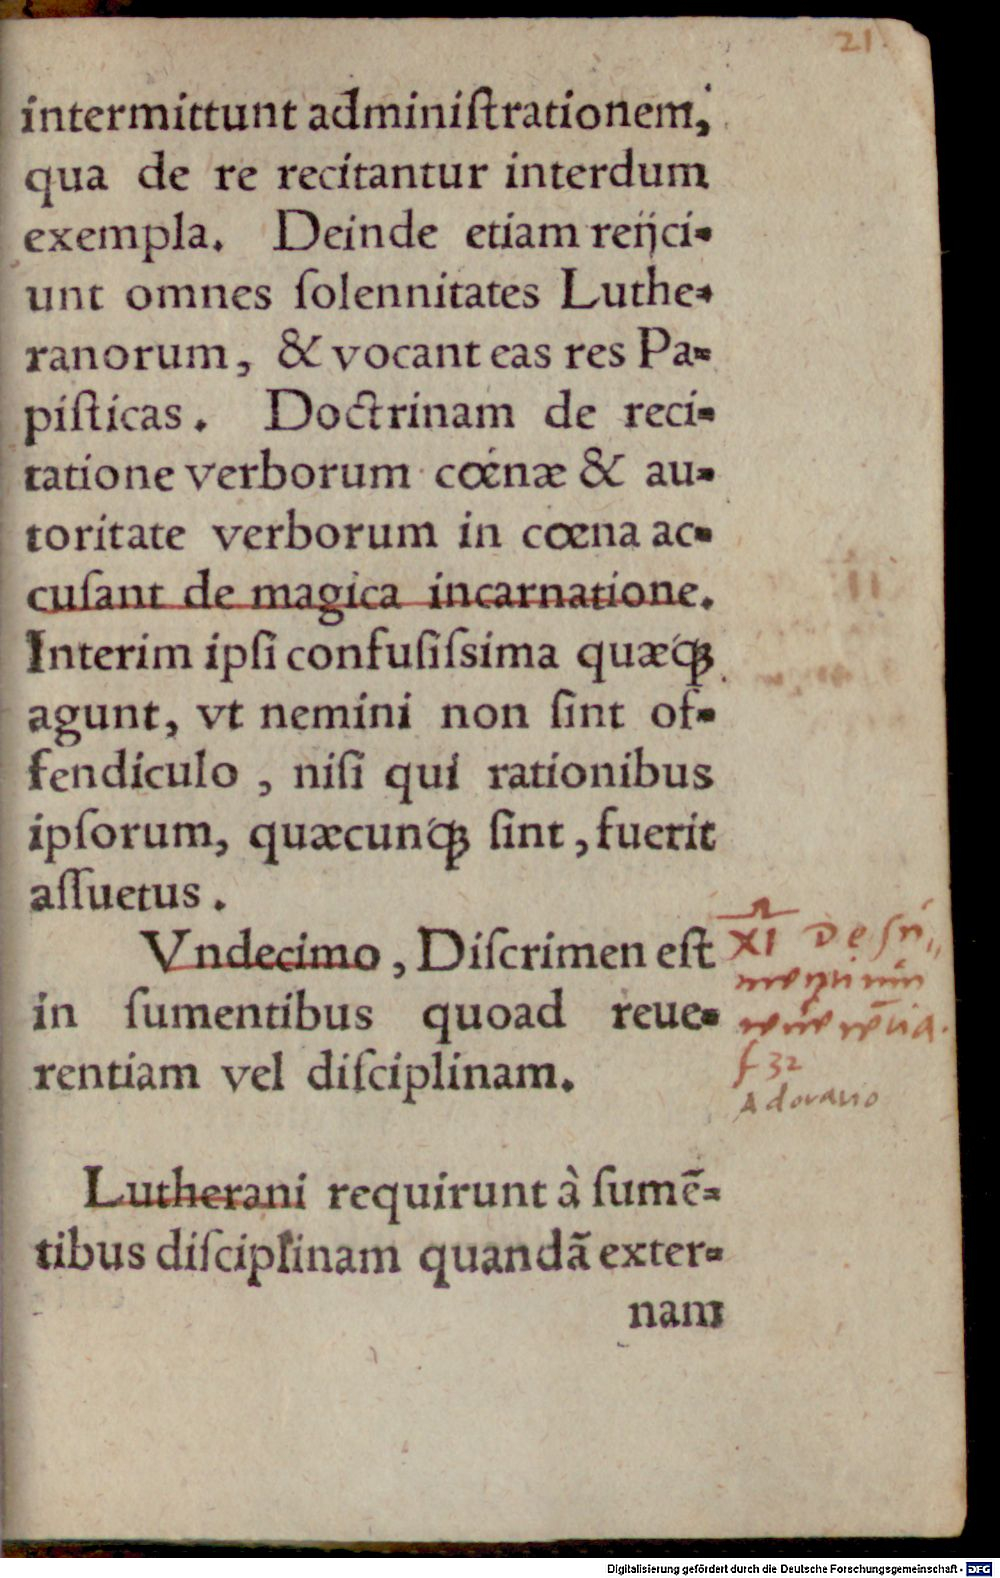 21.
intermittunt adminiſtrationem,
qua de re recitantur interdum
exempla. Deinde etiam reijci-
unt omnes ſolennitates Luthe-
ranorum, & vocant eas res Pa-
piſticas. Doctrinam de reci-
tatione verborum cœnæ & au-
toritate verborum in cœna ac-
cuſant de magica incarnatione.
Interim ipſi confuſiſsima quæq́ꝫ
agunt, vt nemini non ſint of-
fendiculo, niſi qui rationibus
ipſorum, quæcunq́ꝫ ſint, fuerit
aſſuetus.
Vndecimo, Diſcrimen eſt
in ſumentibus quoad reue-
rentiam vel diſciplinam.
XI De
f 32
Adoratio
Lutherani requirunt à ſumẽ-
tibus diſciplinam quandã exter-
nam
Digitalisierung gefördert durch die Deutsche Forschungsgemeinschaft - DFG